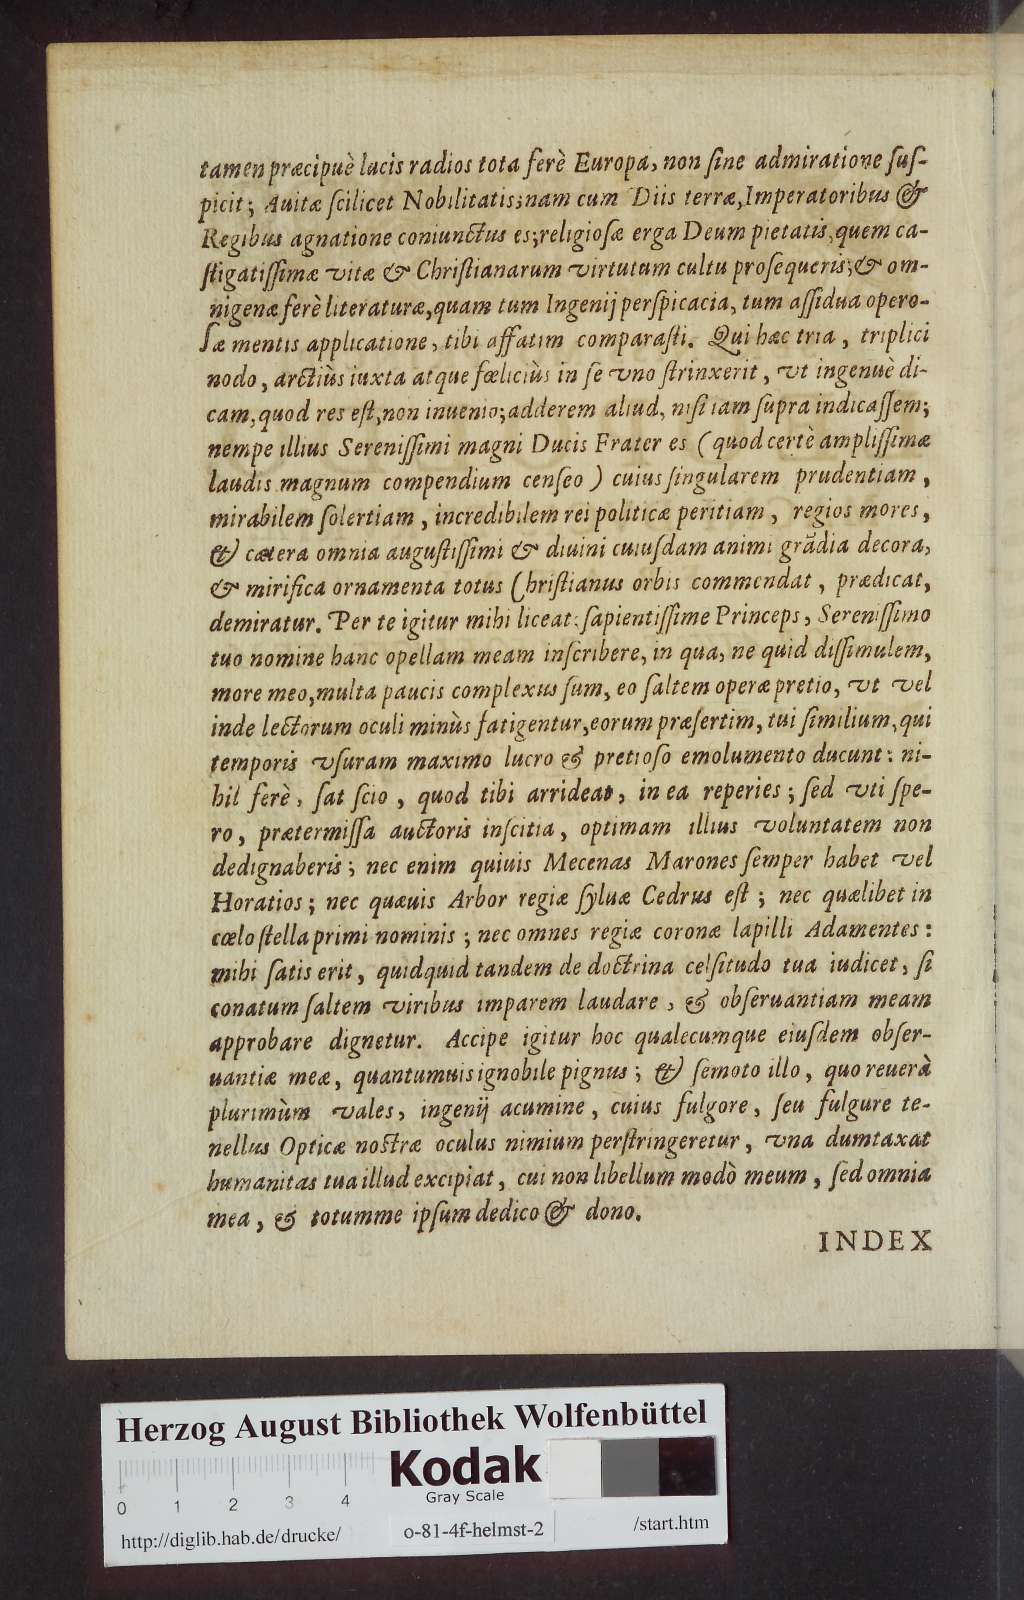 tamen præcipuè lucis radios tota ferè Europa, non ſine admiratione ſuſ-
picit; Auitæ ſcilicet Nobilitatis; nam cum Diis terræ, Imperatoribus &
Regibus agnatione coniunctus es; religioſæ erga Deum pietatis, quem ca-
ſtigatiſſimæ vitæ & Chriſtianarum virtutum cultu proſequeris; & om-
nigenæ ferè literaturæ, quam tum Ingenij perſpicacia, tum aſſidua opero-
ſæ mentis applicatione, tibi affatim comparaſti. Qui hæc tria, triplici
nodo, arctiùs iuxta atque fœliciùs in ſe vno ſtrinxerit, vt ingenuè di-
cam, quod res eſt, non inuenio; adderem aliud, niſi iam ſupra indicaſſem;
nempe illius Sereniſſimi magni Ducis Frater es (quod certè ampliſſimæ
laudis magnum compendium cenſeo) cuius ſingularem prudentiam,
mirabilem ſolertiam, incredibilem rei politicæ peritiam, regios mores,
& cætera omnia auguſtiſſimi & diuini cuiuſdam animi grãdia decora,
& mirifica ornamenta totus Chriſtianus orbis commendat, prædicat,
demiratur. Per te igitur mihi liceat: ſapientiſſime Princeps, Sereniſſimo
tuo nomine hanc opellam meam inſcribere, in qua, ne quid diſſimulem,
more meo, multa paucis complexus ſum, eo ſaltem operæ pretio, vt vel
inde lectorum oculi minùs fatigentur, eorum præſertim, tui ſimilium, qui
temporis vſuram maximo lucro & pretioſo emolumento ducunt: ni-
hil ferè, ſat ſcio, quod tibi arrideat, in ea reperies; ſed vti ſpe-
ro, prætermiſſa auctoris inſcitia, optimam illius voluntatem non
dedignaberis; nec enim quiuis Mecenas Marones ſemper habet vel
Horatios; nec quæuis Arbor regiæ ſyluæ Cedrus eſt; nec quælibet in
cœlo ſtella primi nominis; nec omnes regiæ coronæ lapilli Adamentes:
mihi ſatis erit, quidquid tandem de doctrina celſitudo tua iudicet, ſi
conatum ſaltem viribus imparem laudare, & obſeruantiam meam
approbare dignetur. Accipe igitur hoc qualecumque eiuſdem obſer-
uantiæ meæ, quantumuis ignobile pignus; & ſemoto illo, quo reuerà
plurimùm vales, ingenij acumine, cuius fulgore, ſeu fulgure te-
nellus Opticæ noſtræ oculus nimium perſtringeretur, vna dumtaxat
humanitas tua illud excipiat, cui non libellum modò meum, ſed omnia
mea, & totumme ipſum dedico & dono.
INDEX
Herzog August Bibliothek Wolfenbüttel
Kodak
Gray Scale
0 1 2 3 4
http://diglib.hab.de/drucke/ o-81-4f-helmst-2 /start.htm